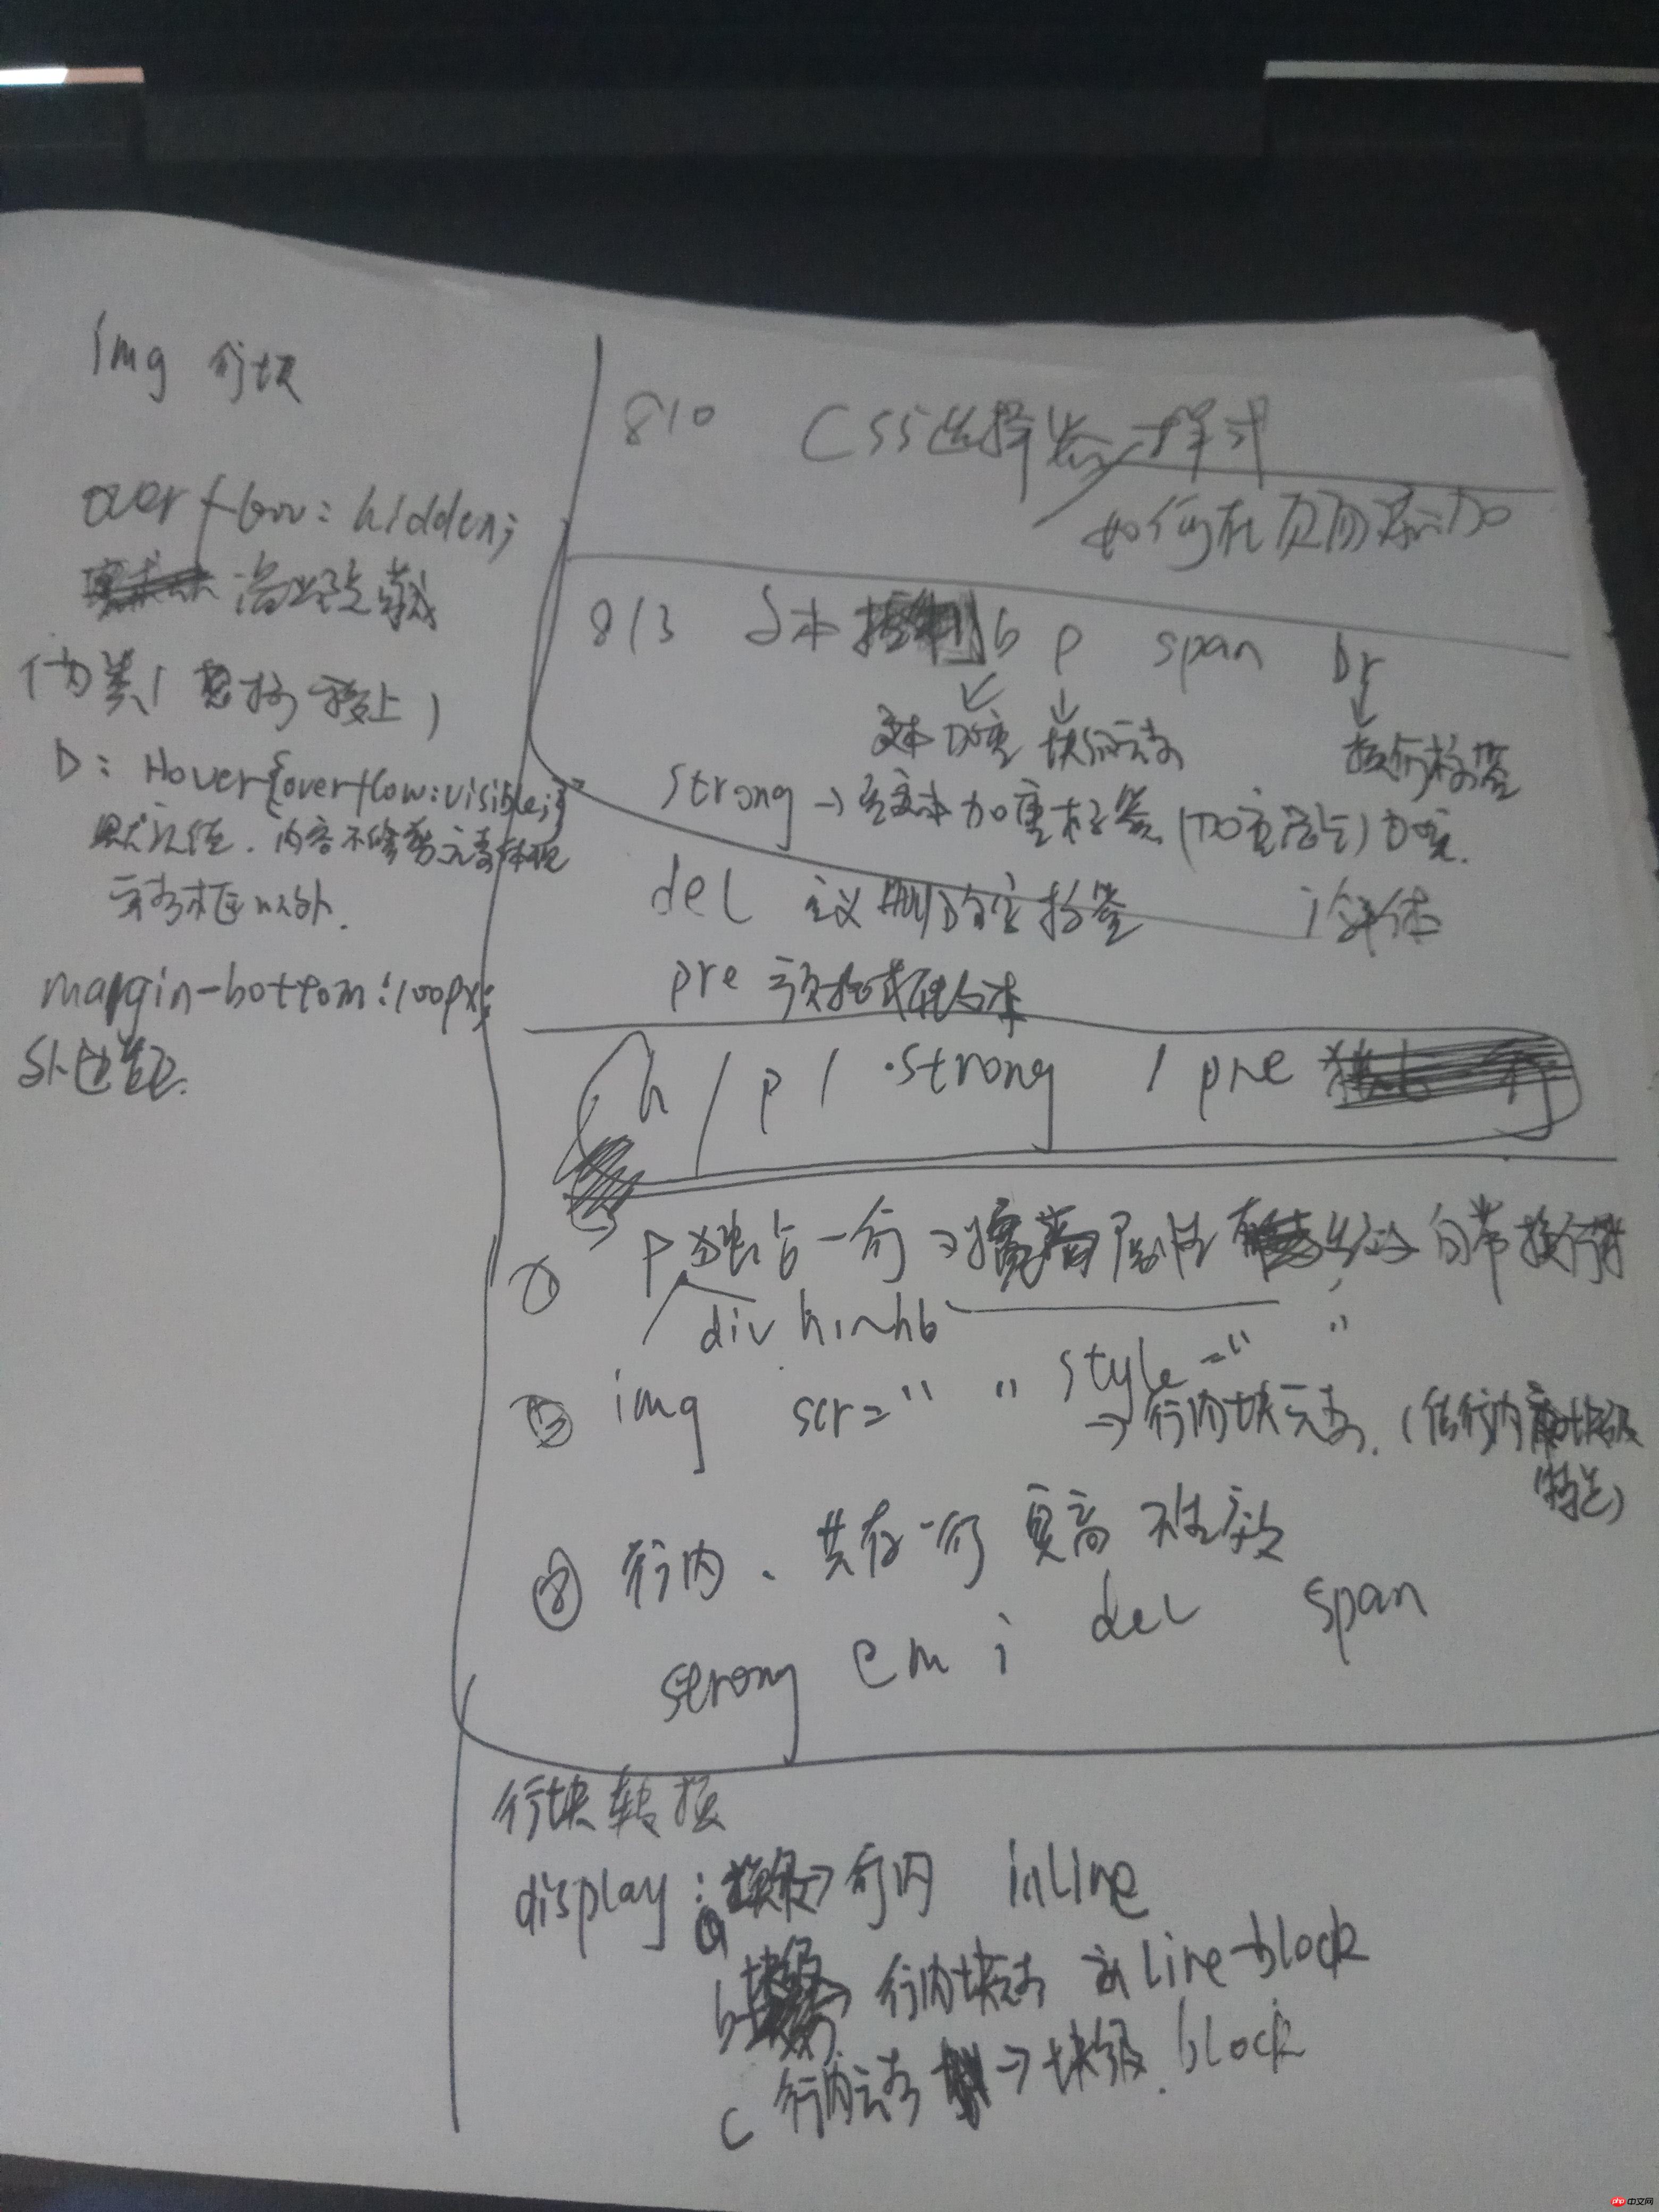 img 行块
overflow: hidden;
溢出
伪类(鼠标移上)
D: Hover{overflow:visible;}
默认值.内容不修剪元素
元素框以外.
margin-bottom:100px;
外边距.
810 CSS选择器 样式
如何在页面
813 b p span br
文本加重 块级元素 换行标签
strong → 文本加重标签 (加重语气) 加宽.
del 定义删除 标签 i 斜体
pre 预格式化文本
h / p / .strong / pre
① P独占一行 → 宽高 属性 自带换行
div h1~h6
② img scr=" " style=" "
→ 行内块元素. (行内 块级
特点)
③ 行内、共存一行 宽高 不生效
strong em i del span
行块转换
display: a 块级→行内 inline
b 块级→ 行内块元素 inline-block
c 行内元素 → 块级. block
php 中文网